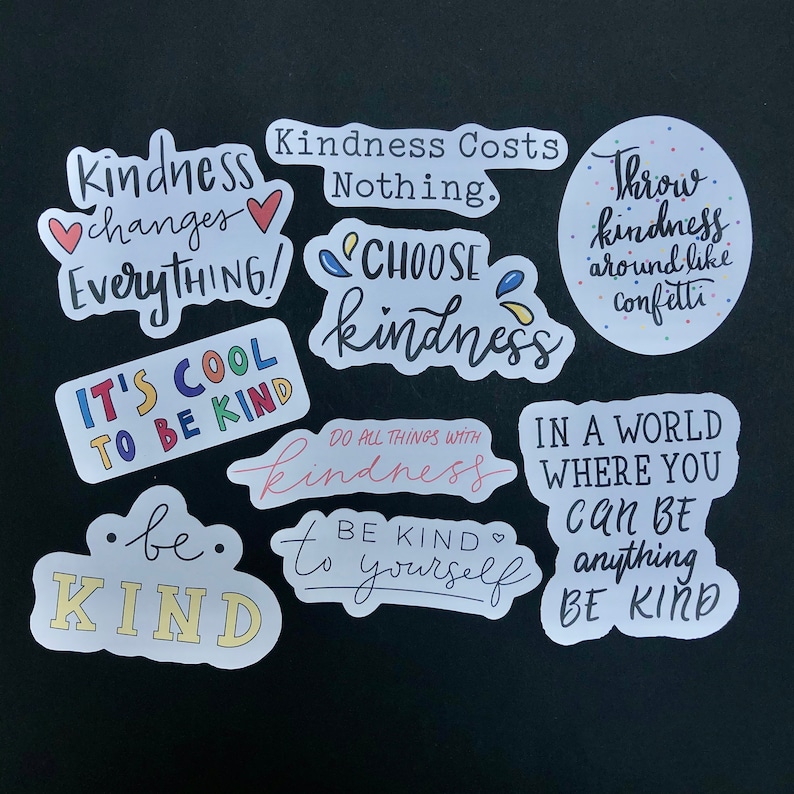 Kindness
changes
EveryTHING!
Kindness Costs
Nothing.
Throw
kindness
around like
confetti
CHOOSE
kindness
IT'S COOL
TO BE KIND
DO ALL THINGS WITH
kindness
IN A WORLD
WHERE YOU
CAN BE
anything
BE KIND
be
KIND
BE KIND
to yourself